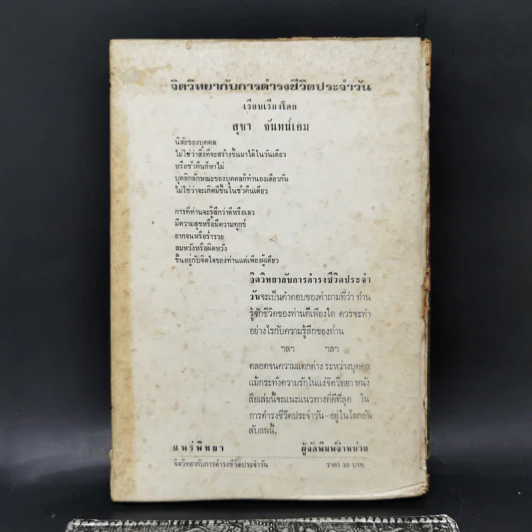 จิตวิทยากับการดำรงชีวิตประจำวัน
เรียบเรียงโดย
สุชา จันทน์เอม
นิสัยของบุคคล
ไม่ใช่ว่าสิ่งที่จะสร้างขึ้นมาได้ในวันเดียว
หรือชั่วคืนก็หาไม่
บุคลิกลักษณะของบุคคลก็ทำนองเดียวกัน
ไม่ใช่ว่าจะเกิดมีขึ้นในชั่วคืนเดียว
การที่ท่านจะรู้สึกว่าดีหรือเลว
มีความสุขหรือมีความทุกข์
ยากจนหรือร่ำรวย
สมหวังหรือผิดหวัง
ขึ้นอยู่กับจิตใจของท่านแต่เพียงผู้เดียว
จิตวิทยากับการดำรงชีวิตประจำ
วันจะเป็นคำตอบของคำถามที่ว่า ท่าน
รู้จักชีวิตของท่านดีเพียงใด ควรจะทำ
อย่างไรกับความรู้สึกของท่าน
ฯลฯ ฯลฯ
ตลอดจนความแตกต่าง ระหว่างบุคคล
แม้กระทั่งความรักในแง่จิตวิทยา หนัง
สือเล่มนี้จะแนะแนวทางที่ดีที่สุด ใน
การดำรงชีวิตประจำวัน–อยู่ในโลกอัน
สับสนนี้.
แพร่พิทยา ผู้จัดพิมพ์จำหน่าย
จิตวิทยากับการดำรงชีวิตประจำวัน ราคา 30 บาท